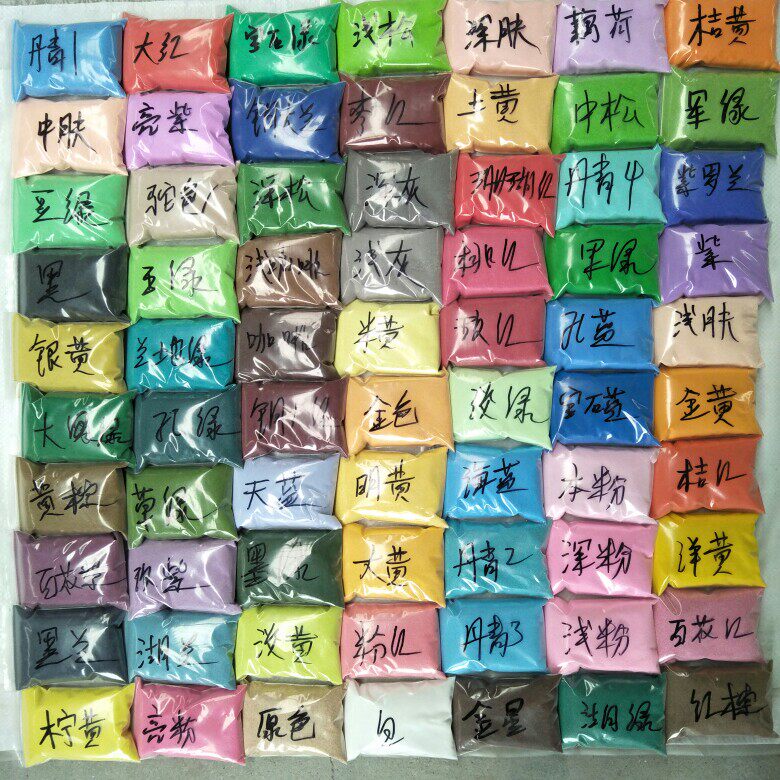 丹青1
大红
宝石绿
浅松
深肤
藕荷
桔黄
中肤
亮紫
枣红
土黄
中松
军绿
豆绿
驼色
深松
深灰
丹青4
紫罗兰
黑
玉绿
浅咖啡
浅灰
桃红
果绿
紫
银黄
兰地绿
咖啡
米黄
玫红
孔蓝
浅肤
大绿
孔绿
金色
淡绿
宝石蓝
金黄
黄棕
黄绿
天蓝
明黄
海蓝
本粉
桔红
百枚紫
玫紫
墨红
大黄
丹青2
深粉
洋黄
黑兰
湖兰
淡黄
粉红
丹青3
浅粉
百枚红
柠黄
亮粉
原色
白
金星
湖绿
红棕